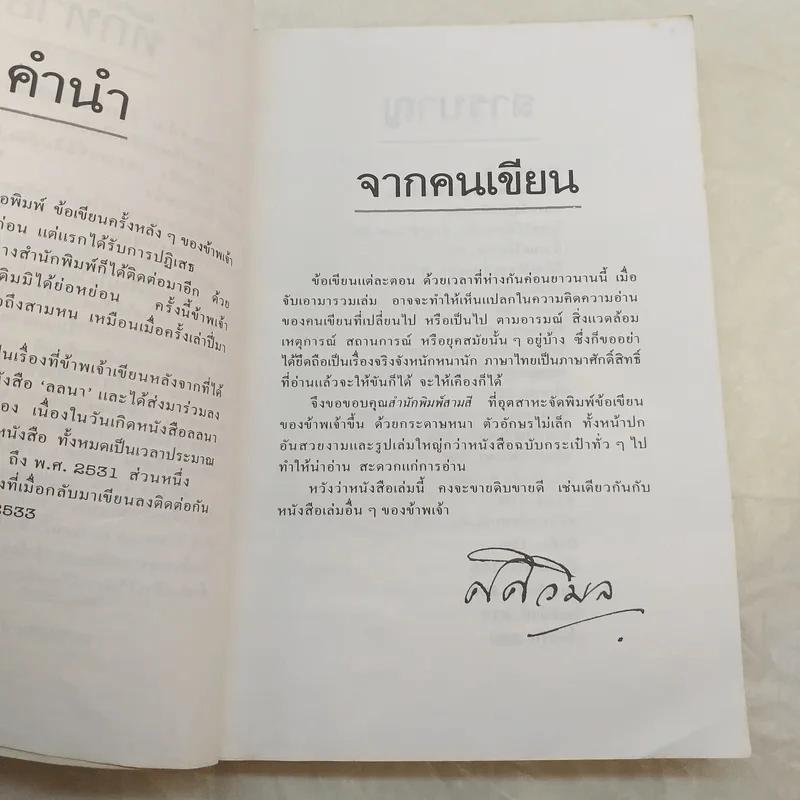 คำนำ
อพิมพ์ ข้อเขียนครั้งหลัง ๆ ของข้าพเจ้า
ก่อน แต่แรกได้รับการปฏิเสธ
างสำนักพิมพ์ก็ได้ติดต่อมาอีก ด้วย
ดิมมิได้ย่อหย่อน ครั้งนี้ข้าพเจ้า
อถึงสามหน เหมือนเมื่อครั้งเล่าปี่มา
ป็นเรื่องที่ข้าพเจ้าเขียนหลังจากที่ได้
นังสือ ‘ลลนา’ และได้ส่งมาร่วมลง
อง เนื่องในวันเกิดหนังสือลลนา
หนังสือ ทั้งหมดเป็นเวลาประมาณ
ถึง พ.ศ. 2531 ส่วนหนึ่ง
งที่เมื่อกลับมาเขียนลงติดต่อกัน
2533
จากคนเขียน
ข้อเขียนแต่ละตอน ด้วยเวลาที่ห่างกันค่อนยาวนานนี้ เมื่อ
จับเอามารวมเล่ม อาจจะทำให้เห็นแปลกในความคิดความอ่าน
ของคนเขียนที่เปลี่ยนไป หรือเป็นไป ตามอารมณ์ สิ่งแวดล้อม
เหตุการณ์ สถานการณ์ หรือยุคสมัยนั้น ๆ อยู่บ้าง ซึ่งก็ขออย่า
ได้ยึดถือเป็นเรื่องจริงจังหนักหนานัก ภาษาไทยเป็นภาษาศักดิ์สิทธิ์
ที่อ่านแล้วจะให้ขันก็ได้ จะให้เคืองก็ได้
จึงขอขอบคุณสำนักพิมพ์สามสี ที่อุตสาหะจัดพิมพ์ข้อเขียน
ของข้าพเจ้าขึ้น ด้วยกระดาษหนา ตัวอักษรไม่เล็ก ทั้งหน้าปก
อันสวยงามและรูปเล่มใหญ่กว่าหนังสือฉบับกระเป๋าทั่ว ๆ ไป
ทำให้น่าอ่าน สะดวกแก่การอ่าน
หวังว่าหนังสือเล่มนี้ คงจะขายดิบขายดี เช่นเดียวกันกับ
หนังสือเล่มอื่น ๆ ของข้าพเจ้า
ศศิวิมล